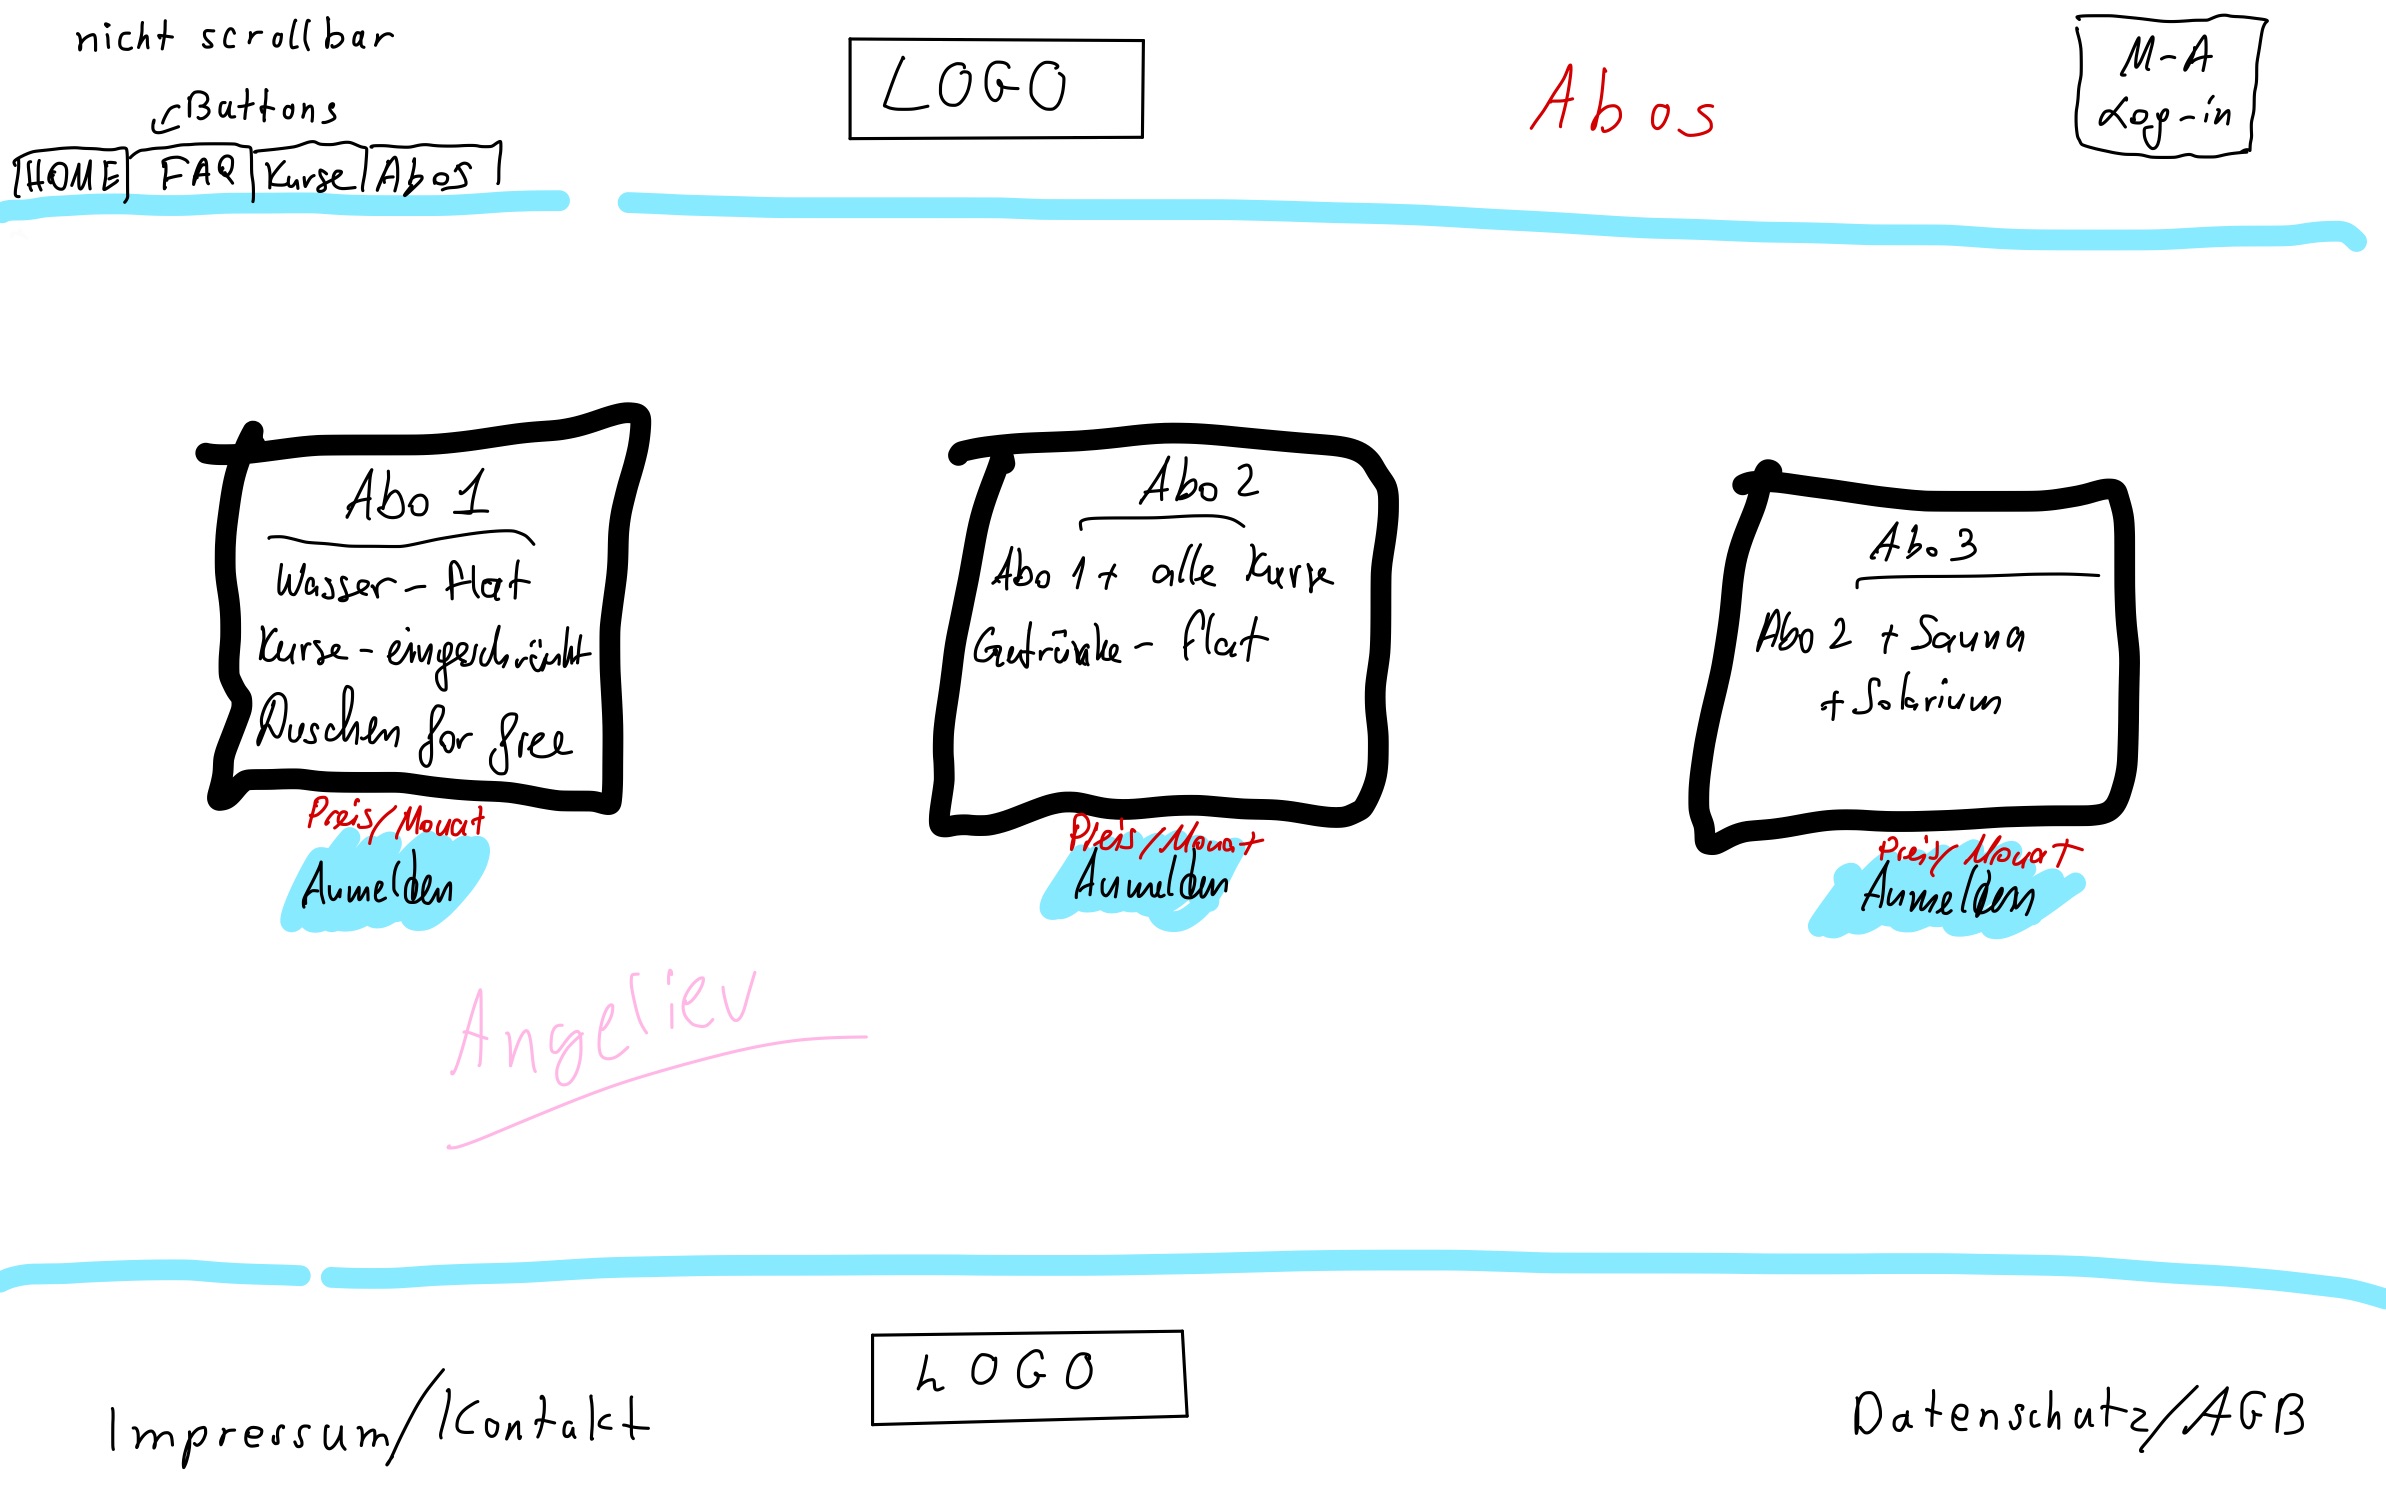 nicht scrollbar
Buttons
HOME FAQ Kurse Abos
LOGO
Abos
M-A
Log-in
Abo 1
Wasser-flat
Kurse-eingeschränkt
Duschen for free
Preis/Monat
Anmelden
Abo 2
Abo 1 + alle Kurse
Getränke-flat
Preis/Monat
Anmelden
Abo 3
Abo 2 + Sauna
+ Solarium
Preis/Monat
Anmelden
Angeliev
Impressum/Kontakt
LOGO
Datenschutz/AGB